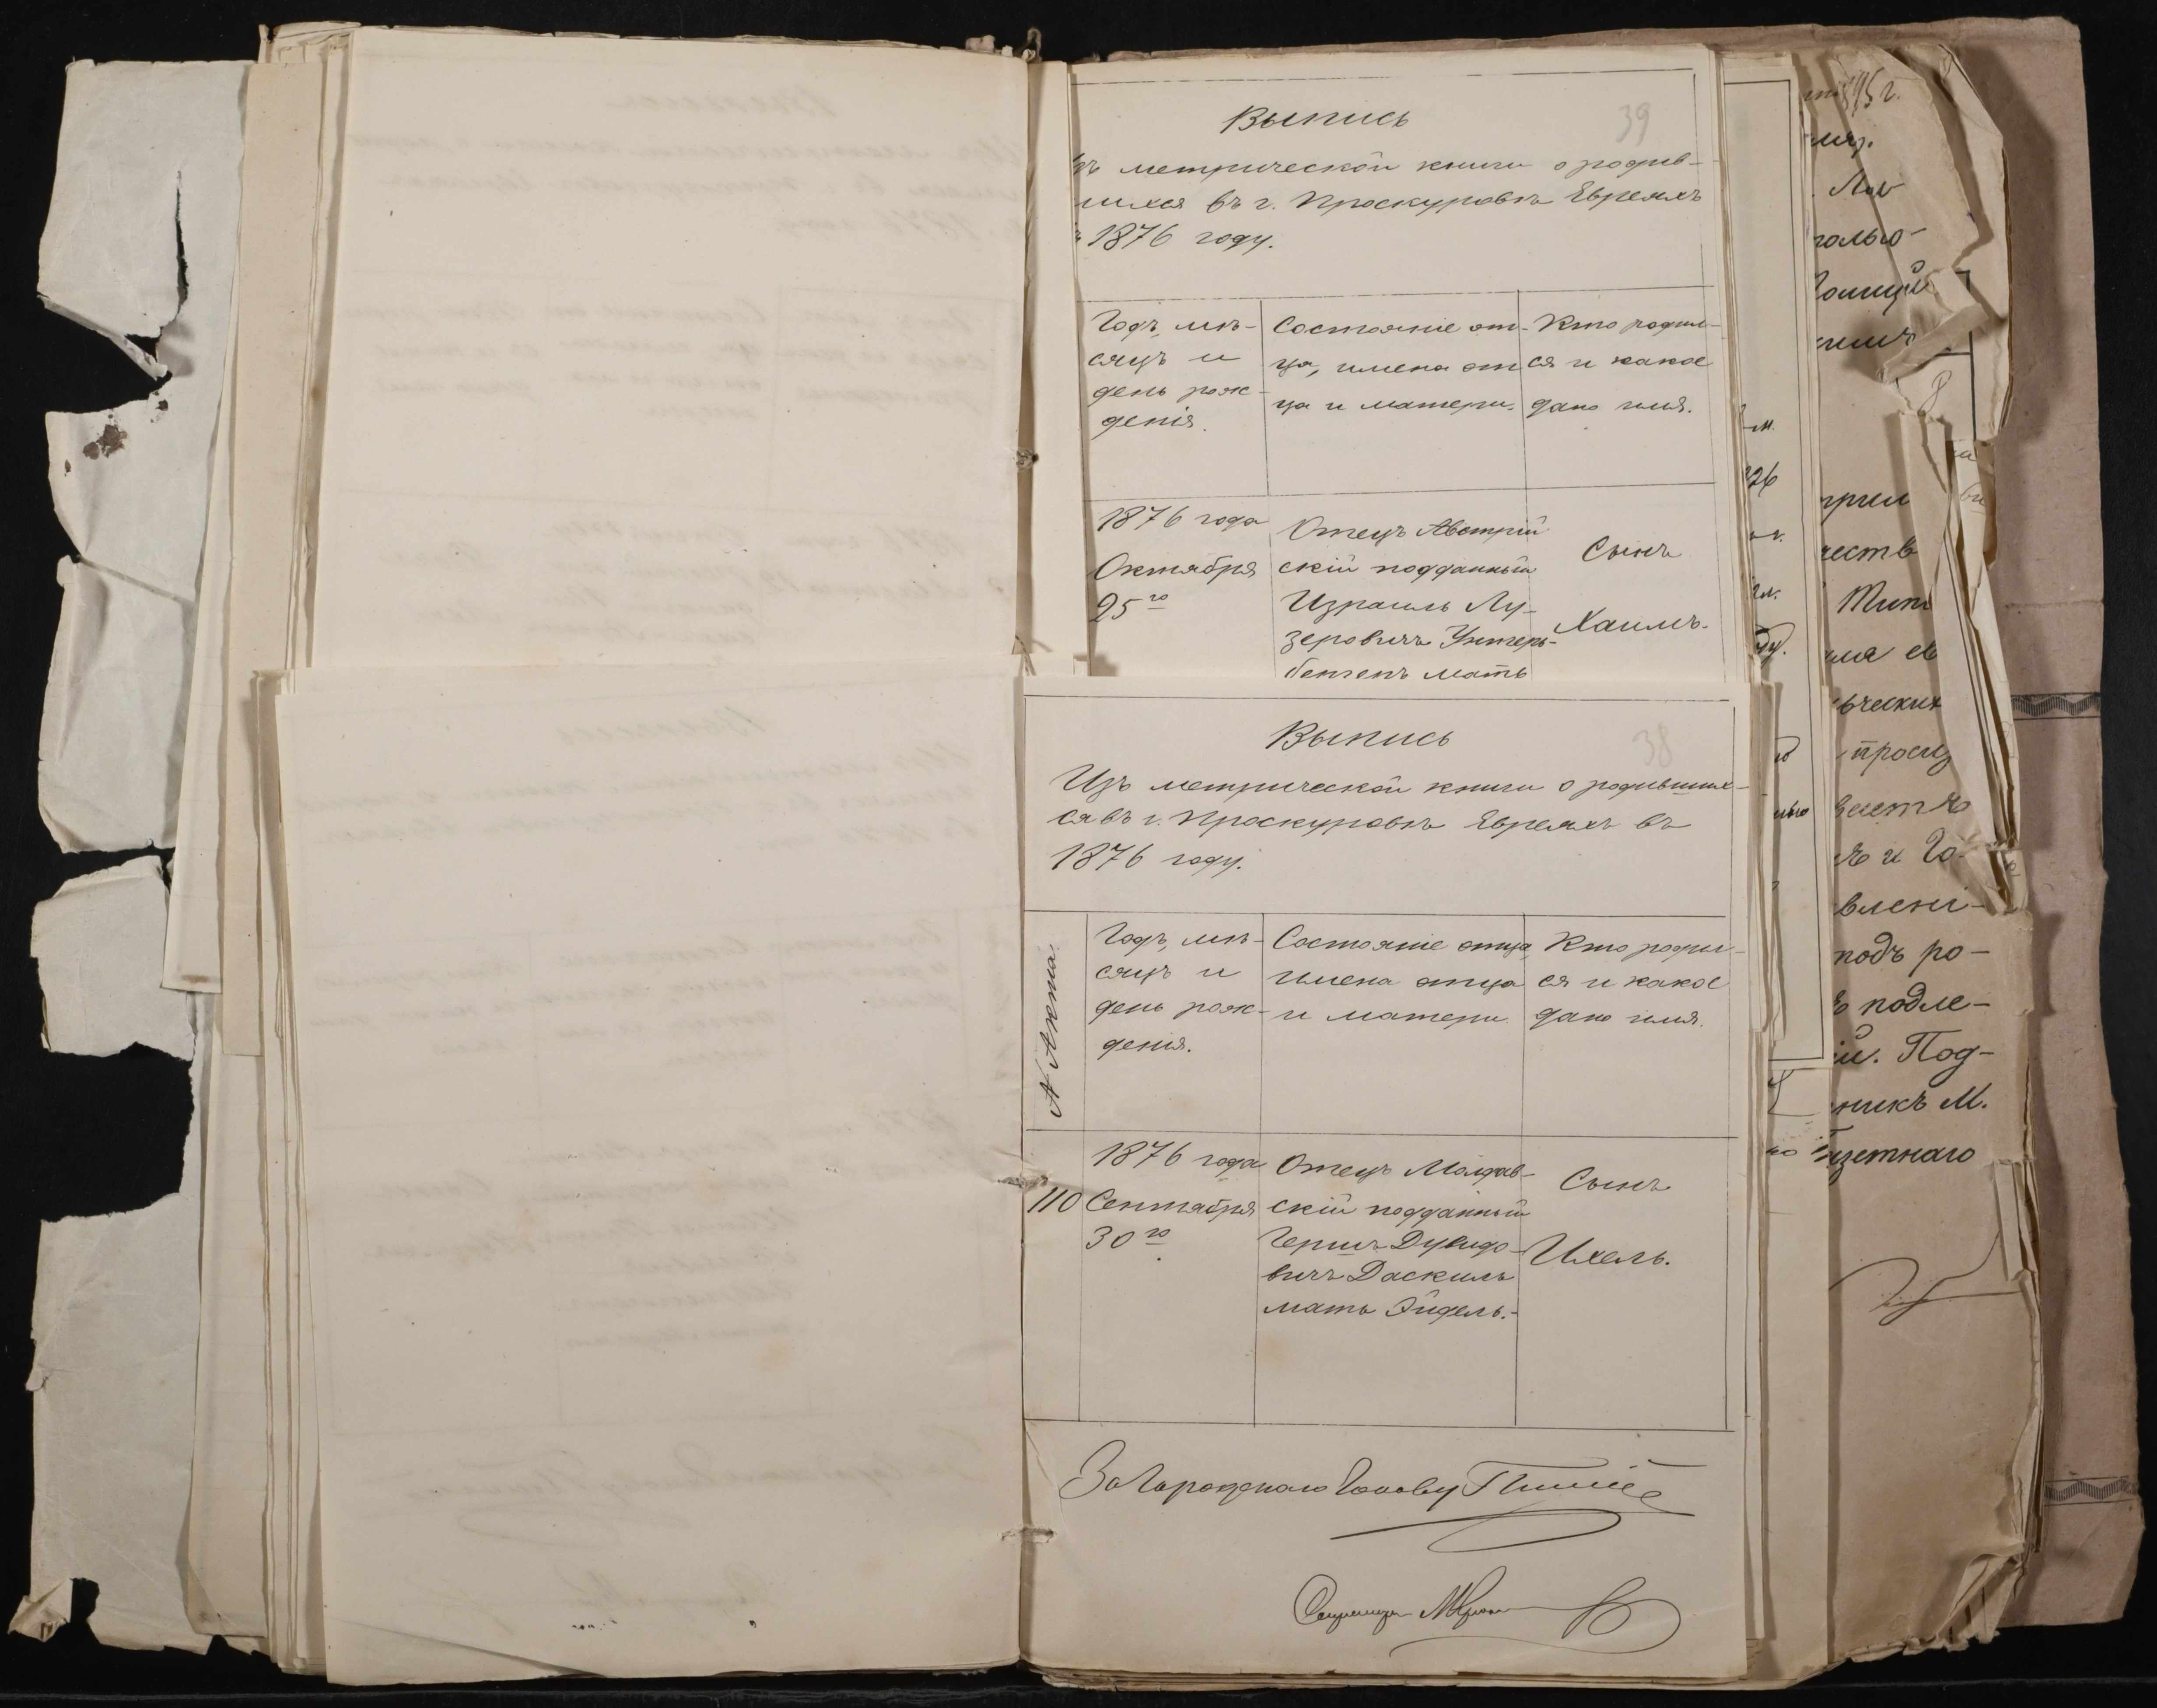 Выпись
39
метрической книги о родив-
шихся въ г. Проскуровѣ Евреяхъ
1876 году.
Годъ, мѣ-
сяцъ и
день рож-
денія.
Состояніе от-
ца, имена от
ца и матери.
Кто родил-
ся и какое
дано имя.
1876 года
Октября
25го
Отецъ Австрій
скій подданный
Израиль Лу-
зеровичъ Унтерь-
бенгенъ мать
Сынъ
Хаимъ.
Выпись
38
Изъ метрической книги о родивших-
ся въ г. Проскуровѣ Евреяхъ въ
1876 году.
№ Акта.
Годъ, мѣ-
сяцъ и
день рож-
денія.
Состояніе отца,
имена отца
и матери.
Кто родил-
ся и какое
дано имя.
110
1876 года
Сентября
30го
Отецъ Молдав-
скій подданный
Гершъ Дувидо-
вичъ Даскиль
мать Эйдель.-
Сынъ
Ихель.
За Городскаго Голову
Секретарь
95 г.
Лав
гольо-
26
прил
честв
Тит
имя ев
ьческих
проси
я и Го-
влені-
подъ ро-
подле-
й. Под-
никъ М.
четнаго